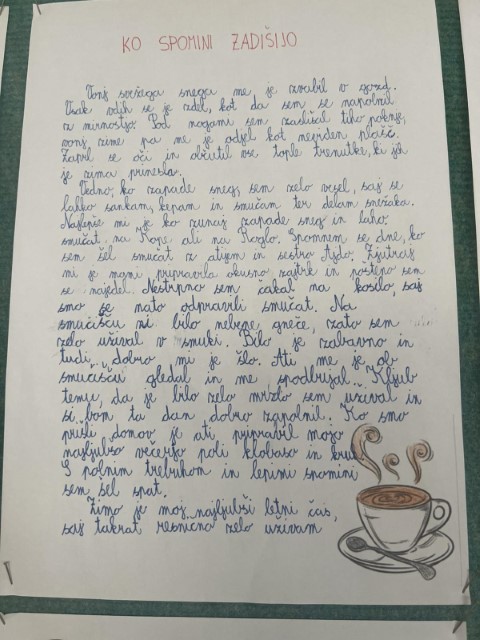 KO SPOMINI ZADIŠIJO
Vonj svežega snega me je zvabil v gozd.
Vsak vdih se je zdel, kot da sem se napolnil
z mirnostjo. Pod nogami sem zaslišal tiho pokanje,
vonj zime pa me je odel kot neviden plašč.
Zaprl se oči in občutil vse tople trenutke, ki jih
je zima prinesla.
Vedno, ko zapade sneg, sem zelo vesel, saj se
lahko sankam, kepam in smučam ter delam snežaka.
Najlepše mi je ko zunaj zapade sneg in lahko
smučat na Kope ali na Roglo. Spomnem se dne, ko
sem šel smučat z atijem in sestro Ajdo. Zjutraj
mi je mami pripravila okusno zajtrk in postopno sem
se najedel. Nestrpno sem čakal na kosilo, saj
smo se nato odpravili smučat. Na
smučišču ni bilo nobene gneče, zato sem
zelo užival v smuki. Bilo je zabavno in
tudi dobro mi je šlo. Ati me je ob
smučišču gledal in me spodbujal. Kljub
temu, da je bilo zelo mrzlo sem užival in
si bom ta dan dobro zapolnil. Ko smo
prišli domov je ati pripravil mojo
najljubšo večerjo poli klobaso in kruh.
S polnim trebuhom in lepimi spomini
sem šel spat.
Zima je moj najljubši letni čas,
saj takrat resnično zelo uživam